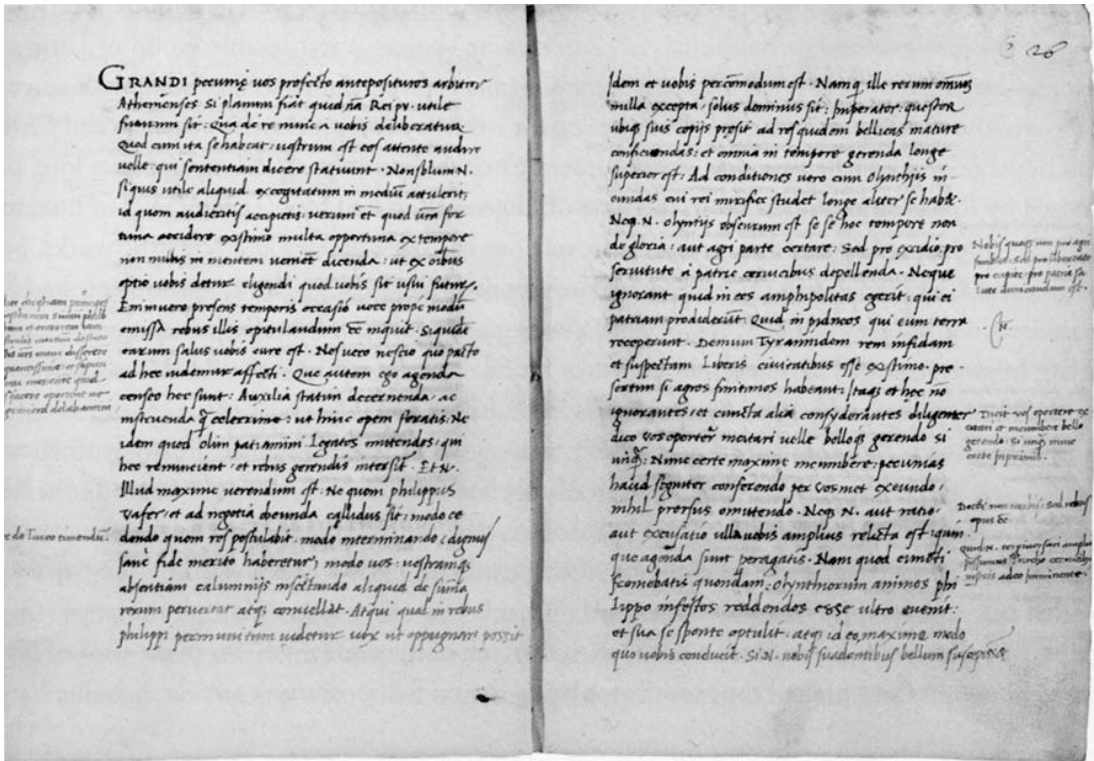 GRANDI pecunię vos profecto anteposituros arbitror
Athenienses Si planum fiat quod nr̄a Rei pu. utile
futurum sit. Qua de re nunc a vobis deliberatur
Quod cum ita se habeat: vestrum est eos attente audire
velle: qui sententiam dicere statuunt. Non solum .N.
si quis utile aliquid excogitatum in mediū attulerit:
id quom audieritis accipietis: verum et quod ur̄a for
tuna accidere existimo multa opportuna ex tempore
non nullis in mentem venient dicenda: ut ex oībus
optio vobis detur eligendi quod vobis sit usui futurū.
Enim vero presens temporis occasio voce prope modū
emissa rebus illis opitulandum ēē inquit. Si quidē
earum salus vobis cure est. Nos vero nescio quo pacto
ad hec videmur affecti. Que autem ego agenda
censeo hec sunt: Auxilia statim decernenda: ac
instruenda q̄ celerrime: ut hinc opem feratis: Ne
idem quod olim patiamini. Legatos mittendos: qui
hec renuncient: et rebus gerendis intersint. Et .N.
Illud maxime verendum est. Ne quom philippus
Vafer: et ad negotia obeunda callidus sit: modo ce
dendo quom res postulabit: modo interminando (dignus
sane fide merito haberetur) modo vos: vestramq;
absentiam calumnijs insectando aliquid de suma
rerum pervertat atq; convellat. Atqui qual in rebus
philippi permunitum videtur vix ut oppugnari possit
26
Idem et vobis percōmodum est. Namq; ille rerum omniū
nulla excepta, solus dominus sit: Imperator: questor
ubiq; suis copijs presit ad res quidem bellicas mature
conficiendas: et omnia in tempore gerenda longe
superior est: Ad conditiones vero cum olynthijs in
eundas cui rei mirifice studet longe aliter se habet.
Neq; .N. olyntijs obscurum est se se hoc tempore non
de gloria: aut agri parte certare: Sed pro excidio, pro
servitute a patrie cervicibus depellenda. Neque
ignorant quid in eos amphipolitas egerit: qui ei
patriam prodiderūt: Quid in pidneos qui eum terra
receperunt. Demum Tyrannidem rem infidam
et suspectam Liberis civitatibus esse existimo: pre
sertim si agros finitimos habeant: Itaq; et hec nō
ignorantes: et cuncta alia consyderātes diligenter
dico vos oportere incitari velle belloq; gerendo si
unq̄: Nunc certe maxime incumbere: pecunias
haud segniter conferendo per vos met exeundo:
nihil prorsus omittendo. Neq; .N. aut ratio:
aut excusatio ulla vobis amplius relicta est: quin
que agenda sunt peragatis. Nam quod cuncti
fremebatis quondam: Olynthiorum animos phi
lippo infestos reddendos esse ultro evenit:
et sua se sponte optulit: atq; id eo maxime modo
quo vobis conducit. Si .N. vobis suadentibus bellum suscepissent
Nobis quoq; non pro agri
finibus: sed pro libertate
pro capite: pro patria sa
lute dimicandum est.
Dicit vos oportere ex
citari et incumbere bello
gerendo: si unq̄ nunc
certe inprimis.
sed rebus
opus ēē